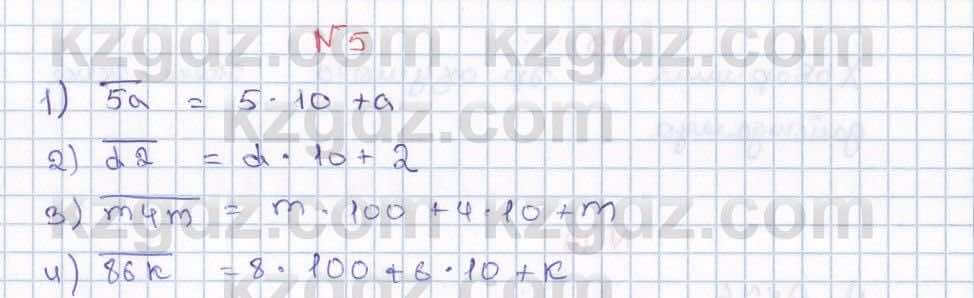 kzgdz.com kzgdz.com
N 5
1) 5a = 5 · 10 + a
kzgdz.com
2) d2 = d · 10 + 2
3) m4m = m · 100 + 4 · 10 + m
kzgdz.com kzgdz.com
4) 86k = 8 · 100 + 6 · 10 + k